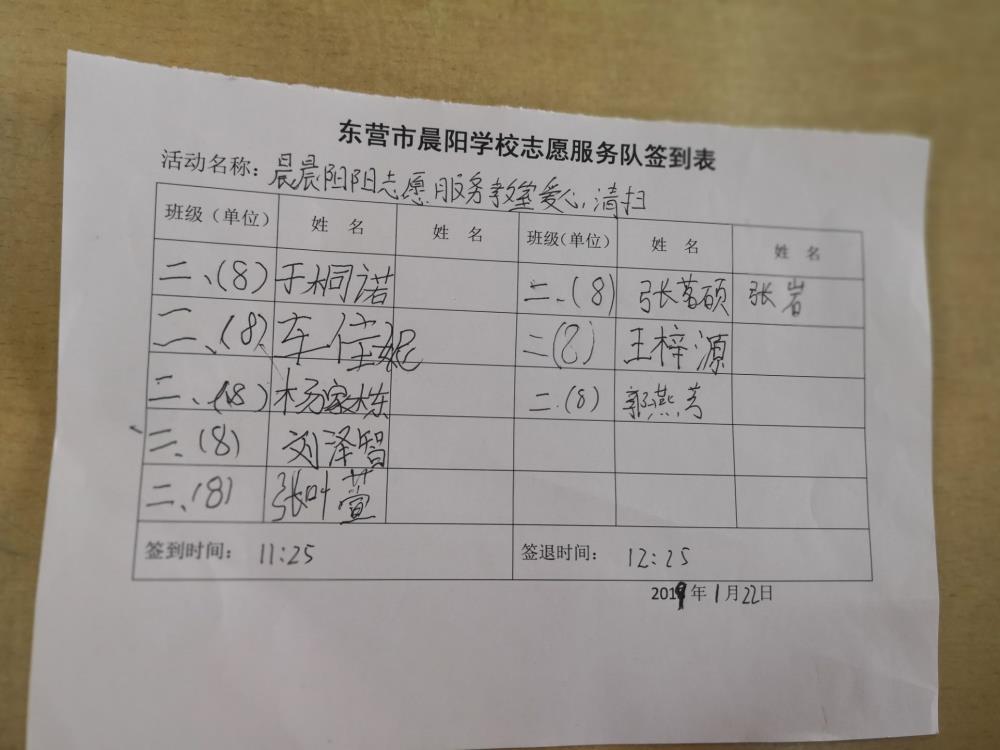 东营市晨阳学校志愿服务队签到表
活动名称：晨晨阳阳志愿服务教室爱心清扫
班级（单位） 姓 名 姓 名 班级（单位） 姓 名 姓 名
二、(8) 于桐诺 二、(8) 张茗硕 张岩
二、(8) 车佳妮 二(8) 王梓源
二、(8) 杨家栋 二.(8) 郭燕芳
二、(8) 刘泽智
二、(8) 张叶萱
签到时间： 11:25 签退时间： 12:25
2019年1月22日